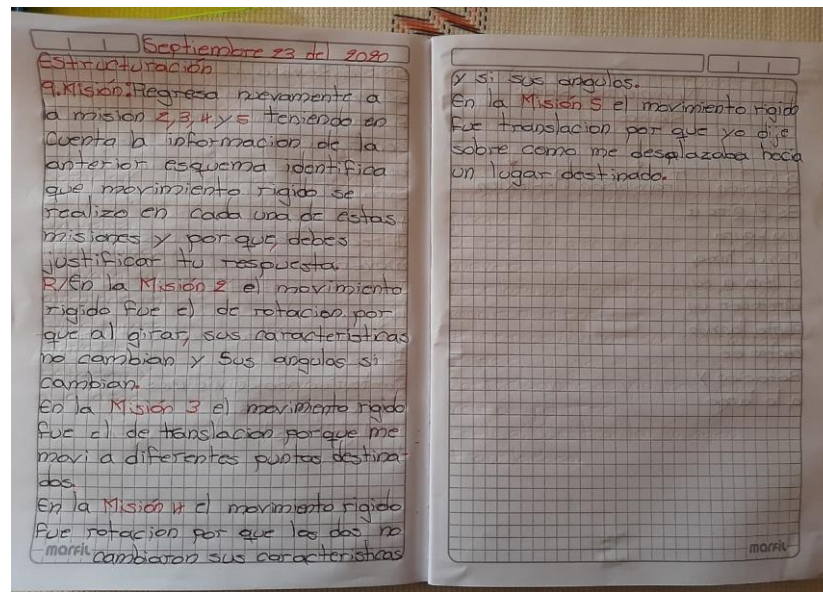 Septiembre 23 del 2020
Estructuración
9. Misión: Regresa nuevamente a
la mision 2, 3, 4 y 5 teniendo en
cuenta la informacion de la
anterior esquema identifica
que movimiento rigido se
realizo en cada una de estas
misiones y por que, debes
justificar tu respuesta
R/ En la Misión 2 el movimiento
rigido fue el de rotacion por
que al girar, sus caracteristicas
no cambian y sus angulos si
cambian.
En la Misión 3 el movimento rigido
fue el de translacion porque me
movi a diferentes puntos destina-
dos.
En la Misión 4 el movimiento rigido
fue rotacion por que los dos no
cambiaron sus caracteristicas
marfil
y si sus angulos.
En la Misión 5 el movimiento rigido
fue translacion por que yo dije
sobre como me desplazaba hacia
un lugar destinado.
marfil